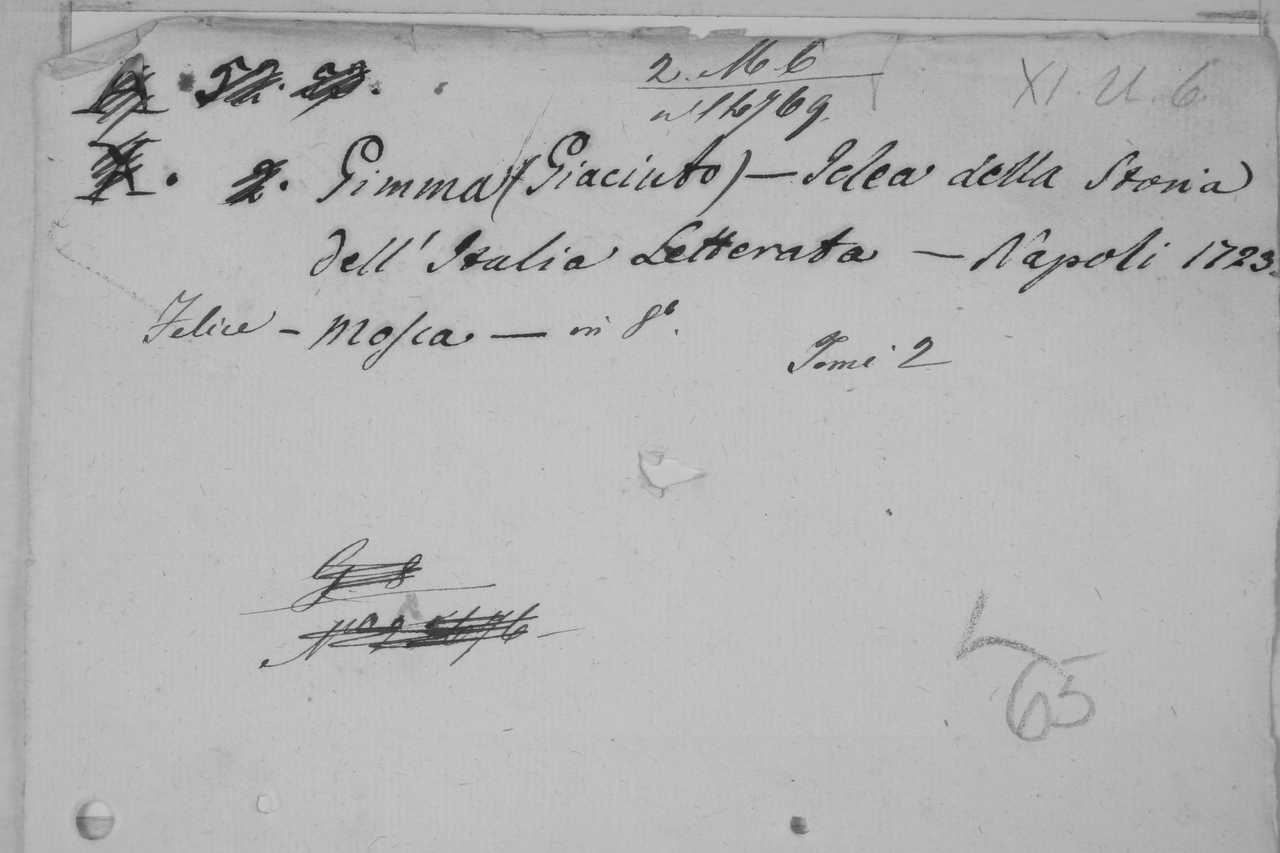 2. M. 6
XI. U. 6.
n° 16769.
Gimma (Giacinto) — Idea della Storia
dell' Italia Letterata — Napoli 1723.
Felice - Mosca — in 8°.
Tomi 2
G 8
65